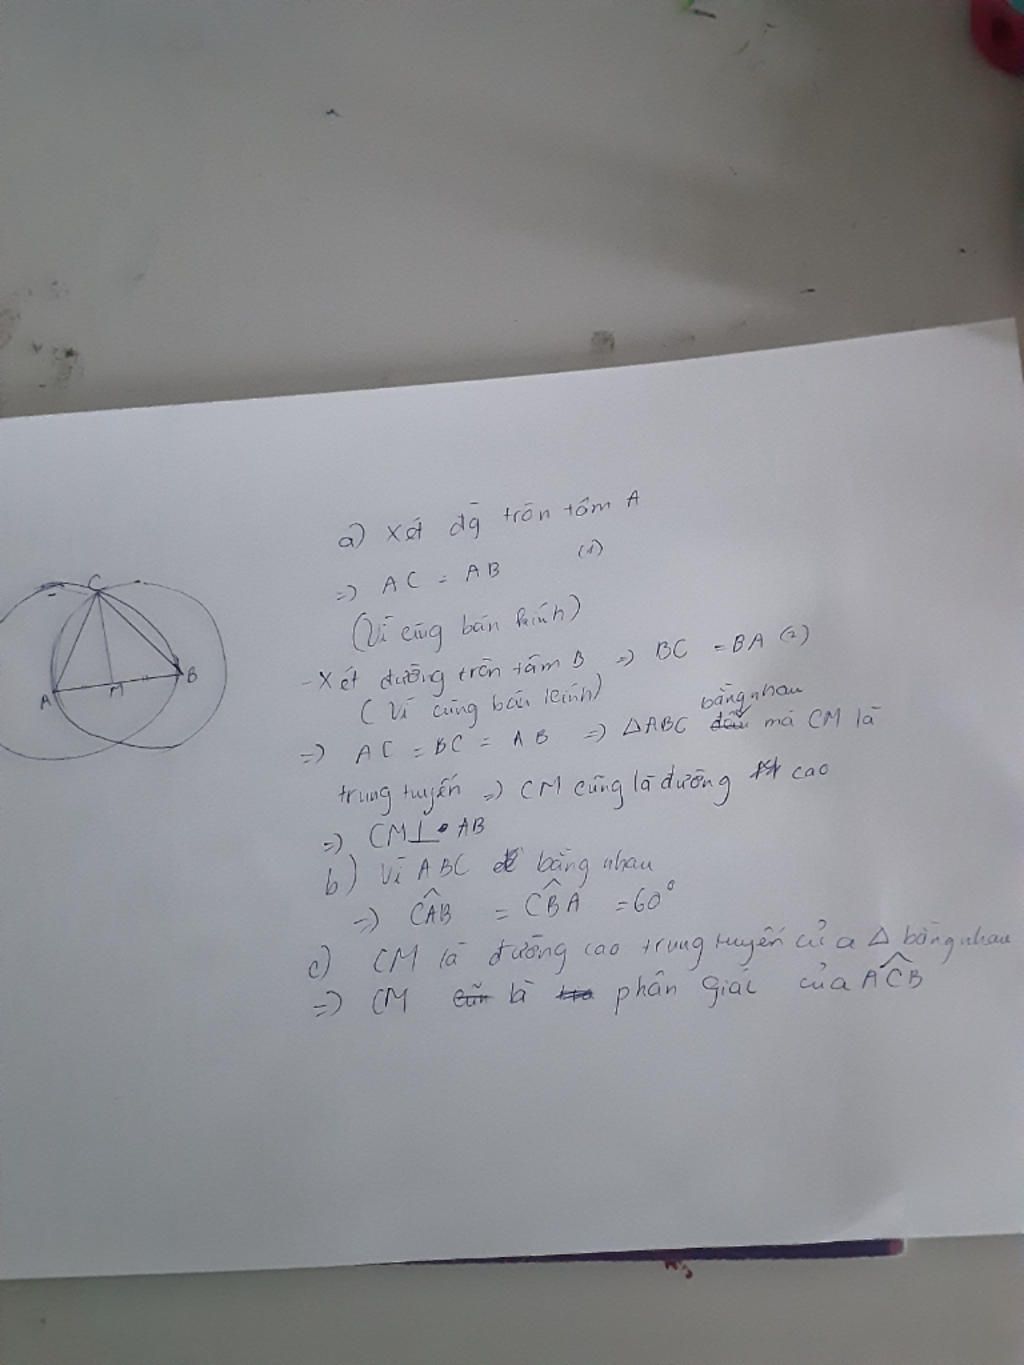 a) Xét đg tròn tâm A
=) AC = AB (1)
(Vì cùng bán kính)
- Xét đường tròn tâm B =) BC = BA (2)
(Vì cùng bán kính)
bằng nhau
=) AC = BC = AB =) ΔABC đều mà CM là
trung tuyến =) CM cũng là đường cao
=) CM⊥ AB
b) Vì ABC bằng nhau
=) CÂB = CB̂A = 60°
c) CM là đường cao trung tuyến của Δ bằng nhau
=) CM là phân giác của AĈB
C
A
M
B